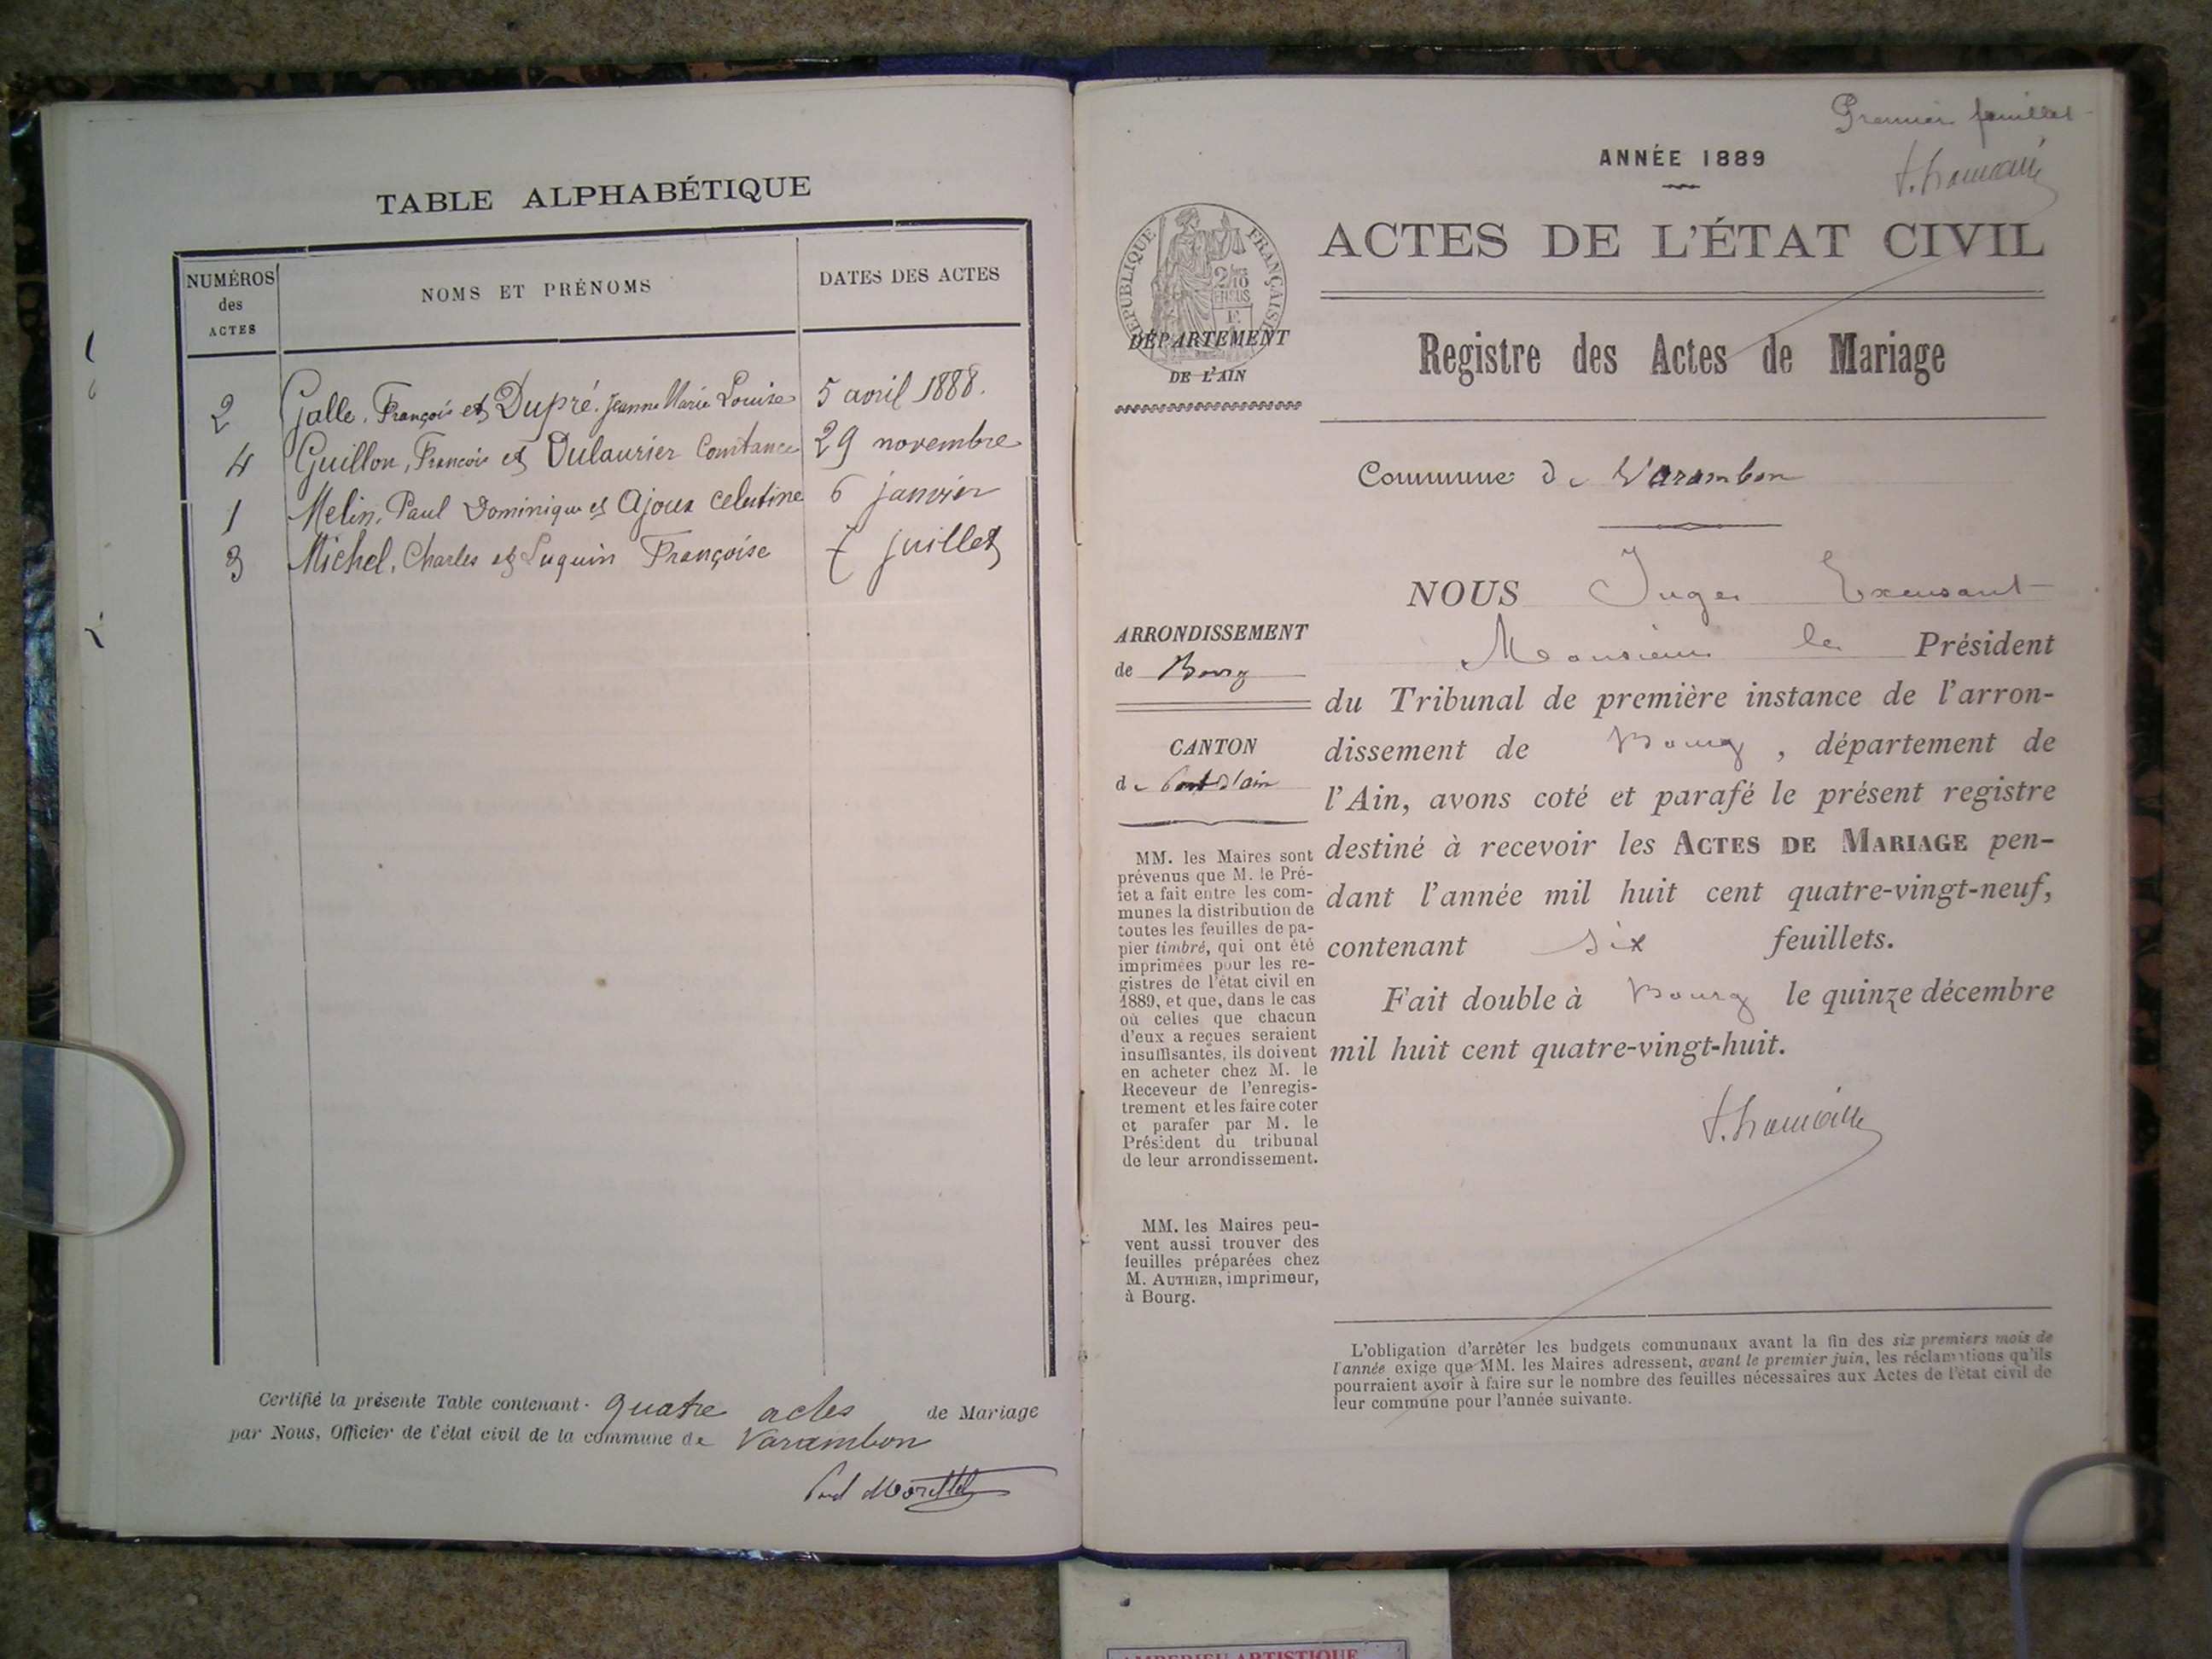 TABLE ALPHABÉTIQUE
NUMÉROS des ACTES
NOMS ET PRÉNOMS
DATES DES ACTES
2 Galle, François et Dupré Jeanne Marie Louise 5 avril 1888.
4 Guillon, François et Dulaurier Constance 29 novembre
1 Melin, Paul Dominique et Ajoux Celestine 6 janvier
3 Michel, Charles et Luquin Françoise 7 juillet
Certifié la présente Table contenant quatre actes de Mariage
par Nous, Officier de l'état civil de la commune de Varambon
Premier feuillet
ANNÉE 1889
ACTES DE L'ÉTAT CIVIL
RÉPUBLIQUE FRANÇAISE
DÉPARTEMENT
DE L'AIN
Registre des Actes de Mariage
Commune de Varambon
ARRONDISSEMENT
de Bourg
CANTON
de Pont d'ain
MM. les Maires sont
prévenus que M. le Pré-
fet a fait entre les com-
munes la distribution de
toutes les feuilles de pa-
pier timbré, qui ont été
imprimées pour les re-
gistres de l'état civil en
1889, et que, dans le cas
où celles que chacun
d'eux a reçues seraient
insuffisantes, ils doivent
en acheter chez M. le
Receveur de l'enregis-
trement et les faire coter
et parafer par M. le
Président du tribunal
de leur arrondissement.
MM. les Maires peu-
vent aussi trouver des
feuilles préparées chez
M. AUTHIER, imprimeur,
à Bourg.
NOUS Juge Excusant
Monsieur le Président
du Tribunal de première instance de l'arron-
dissement de Bourg, département de
l'Ain, avons coté et parafé le présent registre
destiné à recevoir les ACTES DE MARIAGE pen-
dant l'année mil huit cent quatre-vingt-neuf,
contenant six feuillets.
Fait double à Bourg le quinze décembre
mil huit cent quatre-vingt-huit.
L'obligation d'arrêter les budgets communaux avant la fin des six premiers mois de
l'année exige que MM. les Maires adressent, avant le premier juin, les réclamations qu'ils
pourraient avoir à faire sur le nombre des feuilles nécessaires aux Actes de l'état civil de
leur commune pour l'année suivante.
AMBERIEU ARTISTIQUE